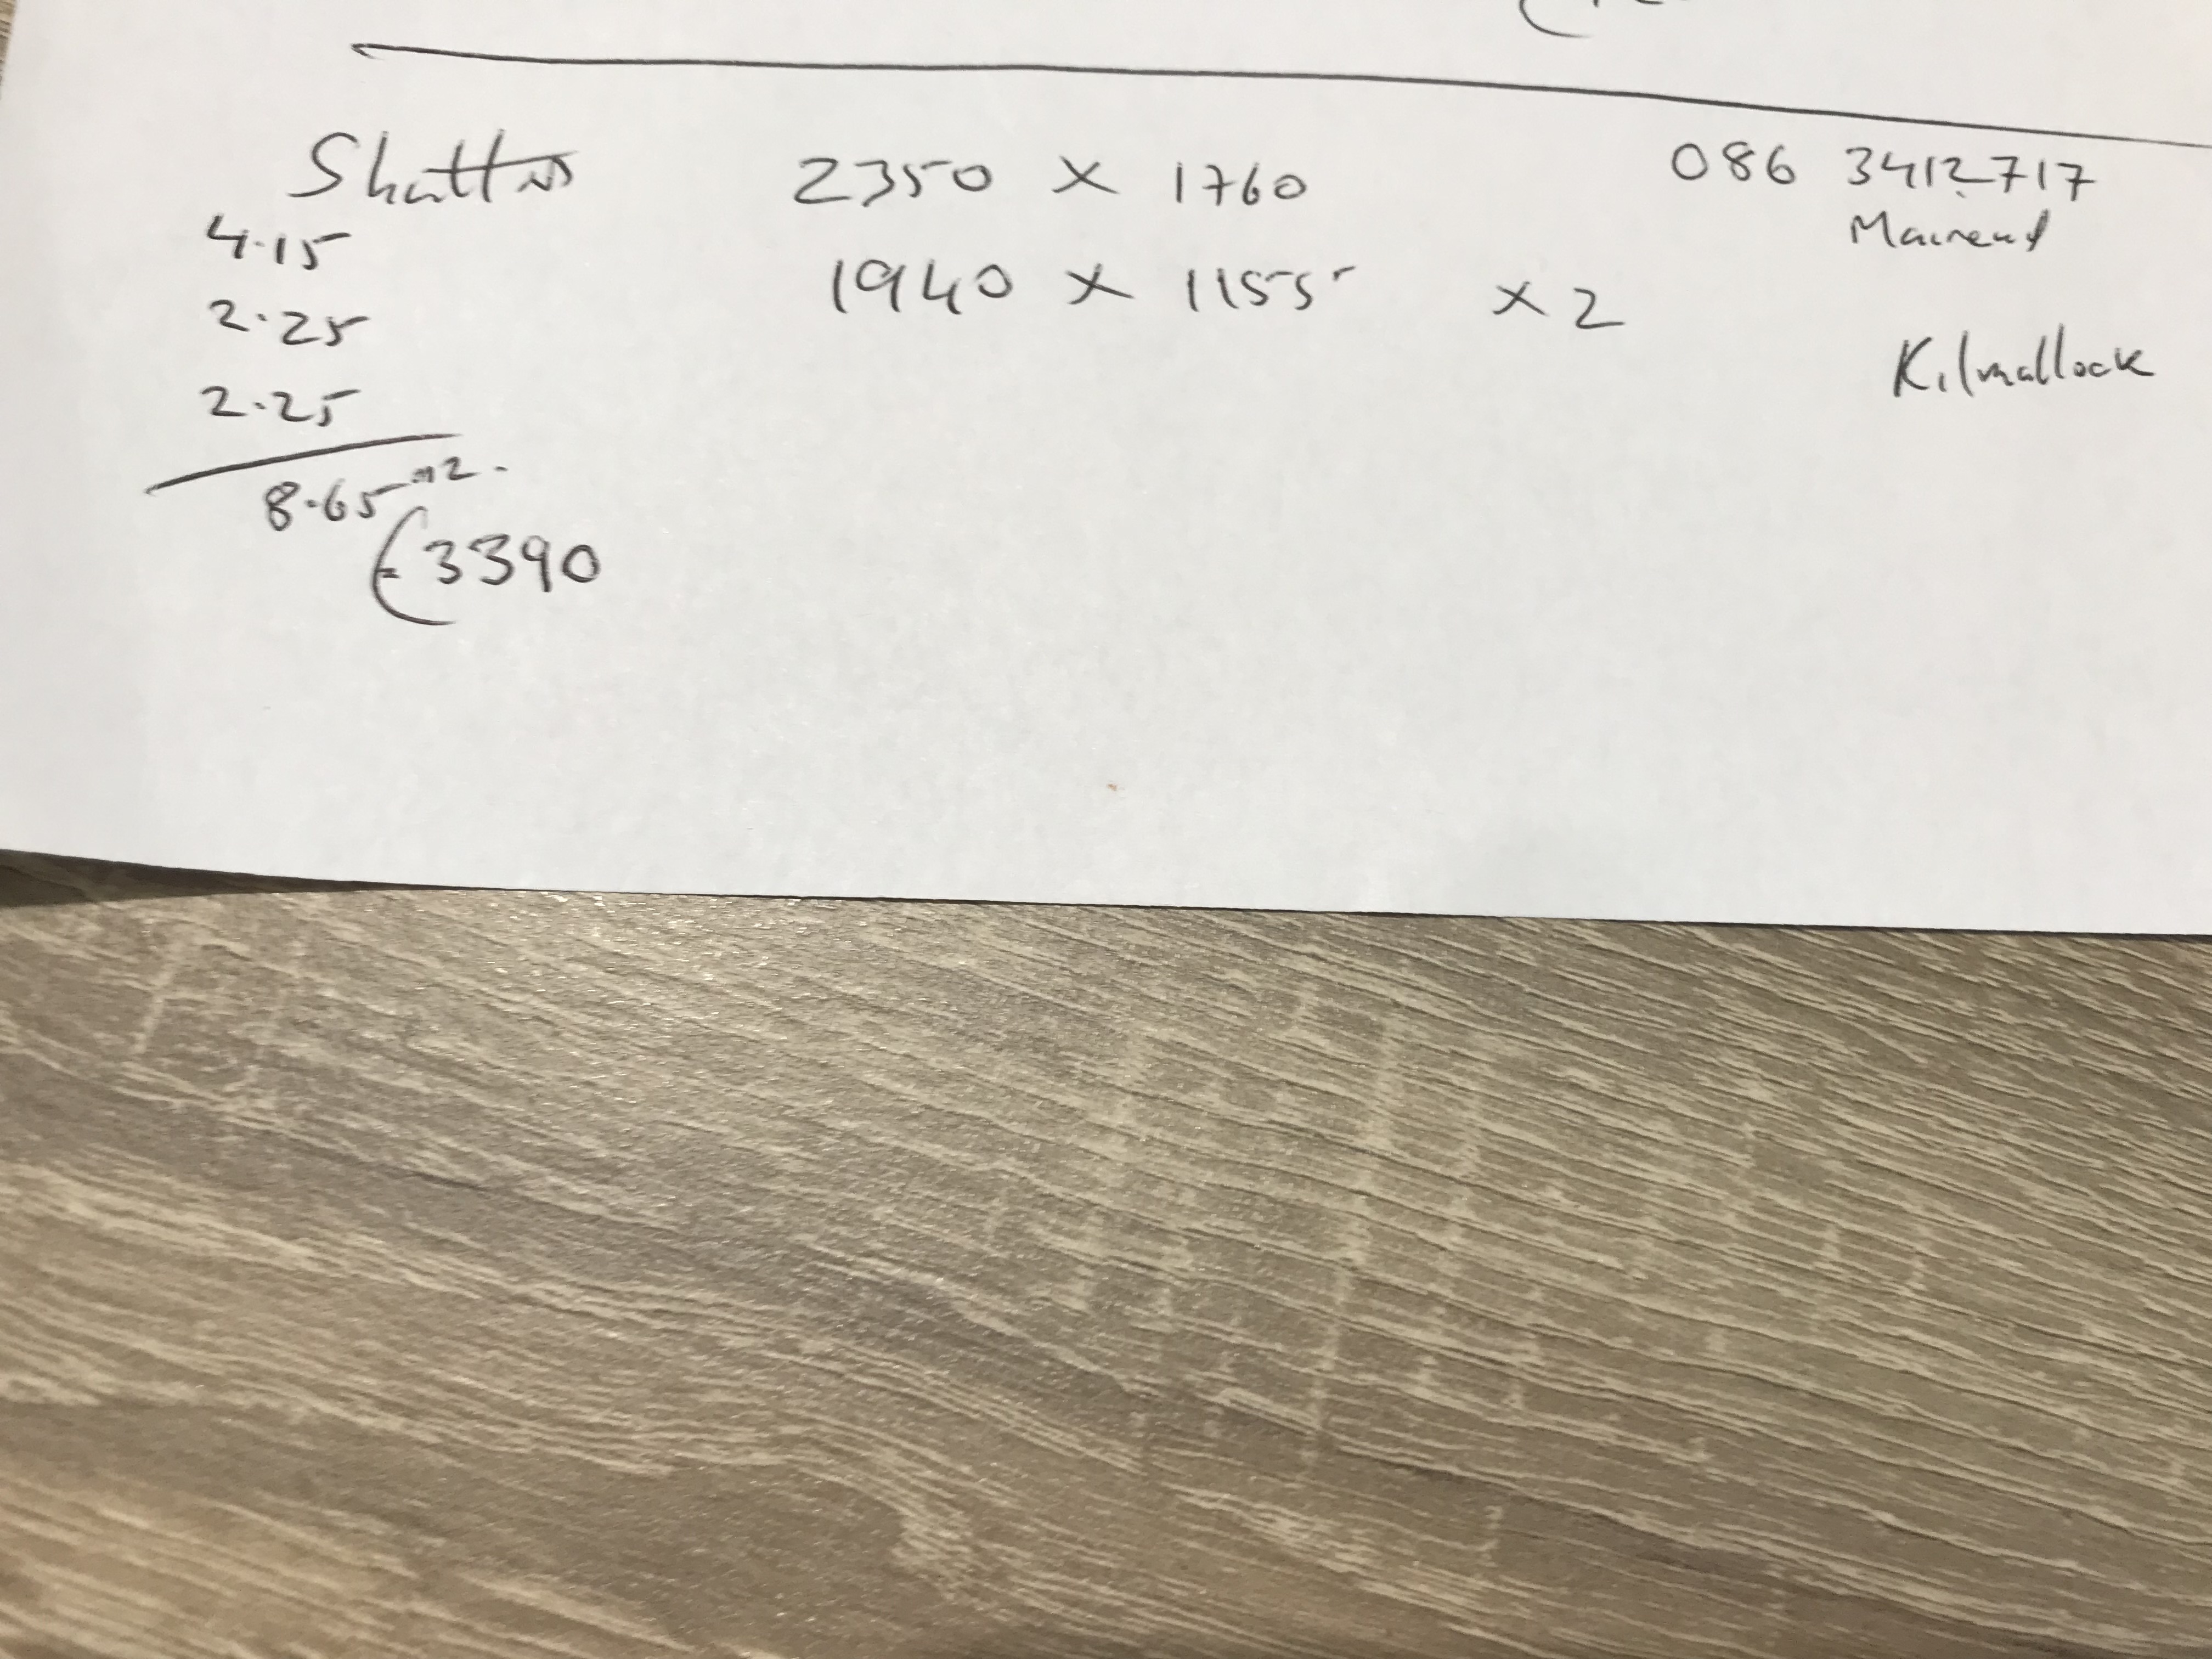 Shutters 2350 x 1760 086 3412717
4.15 Mairead
2.25 1940 x 1155 x 2
2.25 Kilmallock
8.65 m2.
€3390